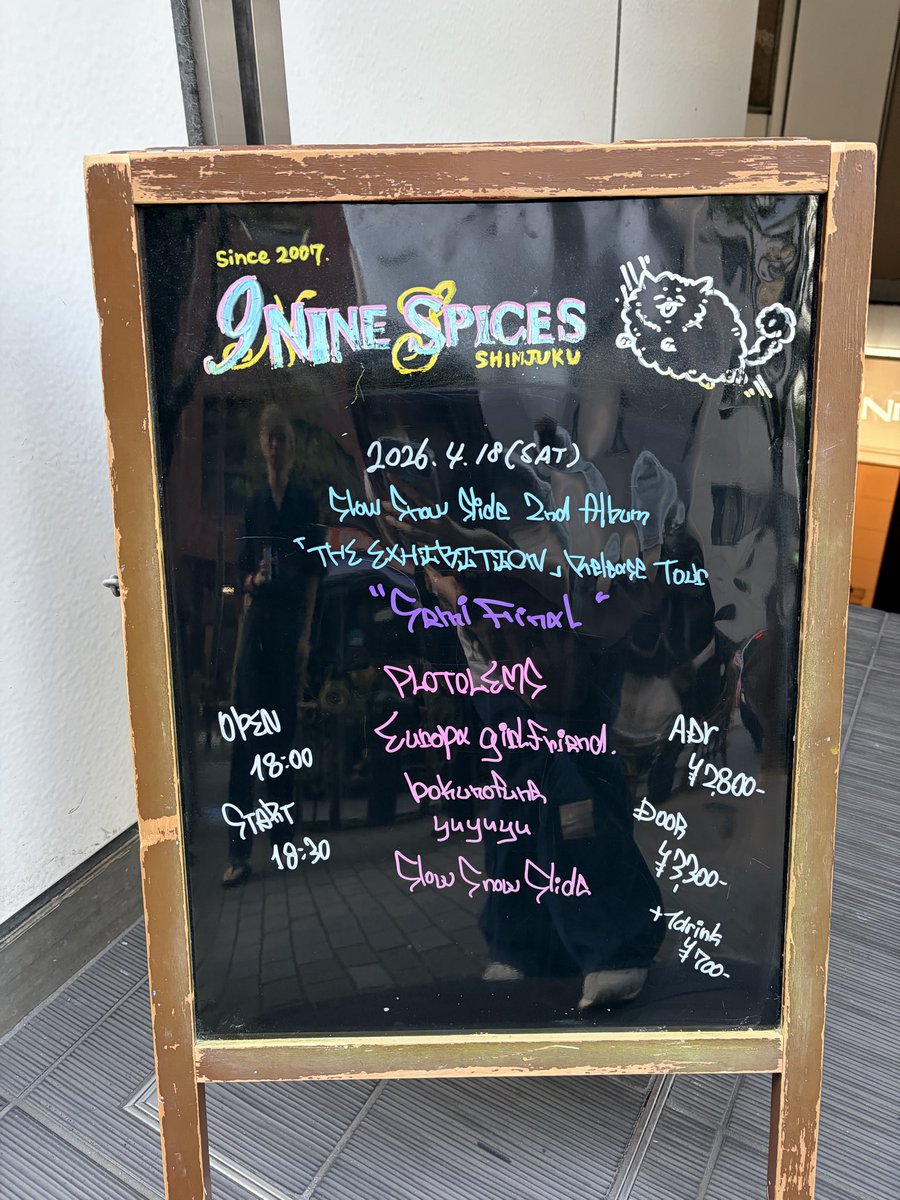 Since 2007.
9 NINE SPICES
SHINJUKU
2026.4.18(SAT)
Slow Snow Slide 2nd Album
「THE EXHIBITION」Release Tour
"Semi Final"
PLOTOLEMS
Europa girlfriend.
bokunofune
yuyuyu
Slow Snow Slide
OPEN
18:00
START
18:30
ADV
¥2,800-
DOOR
¥3,300-
+1drink
¥700-